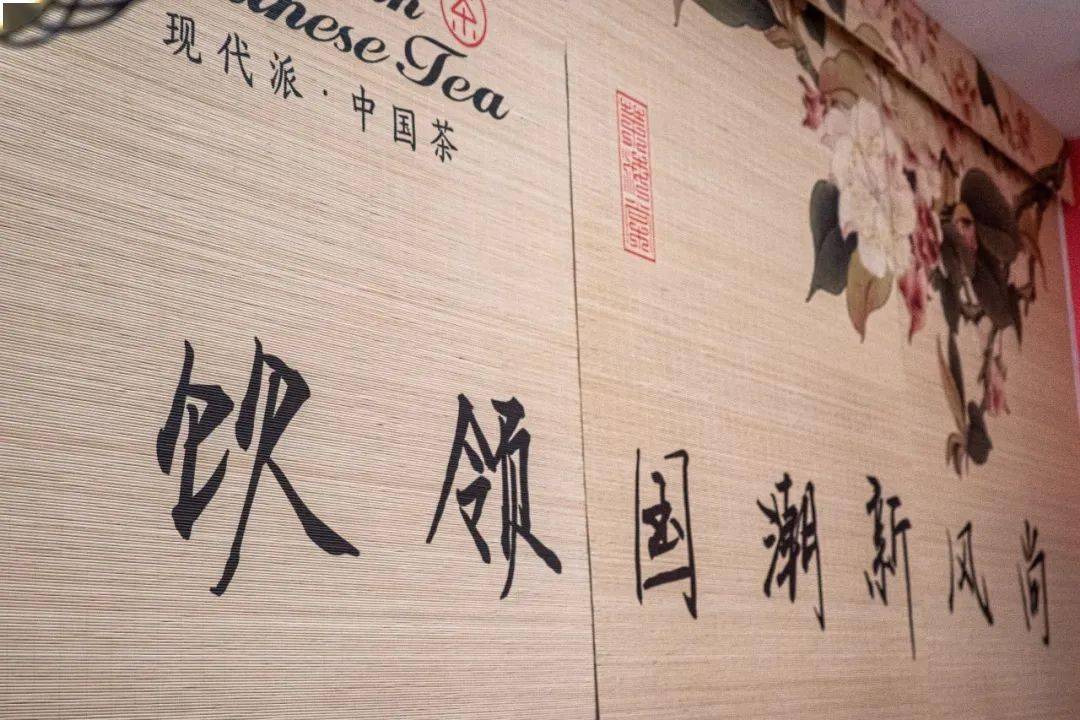 Chinese Tea
茶
现代派·中国茶
饮领国潮新风尚